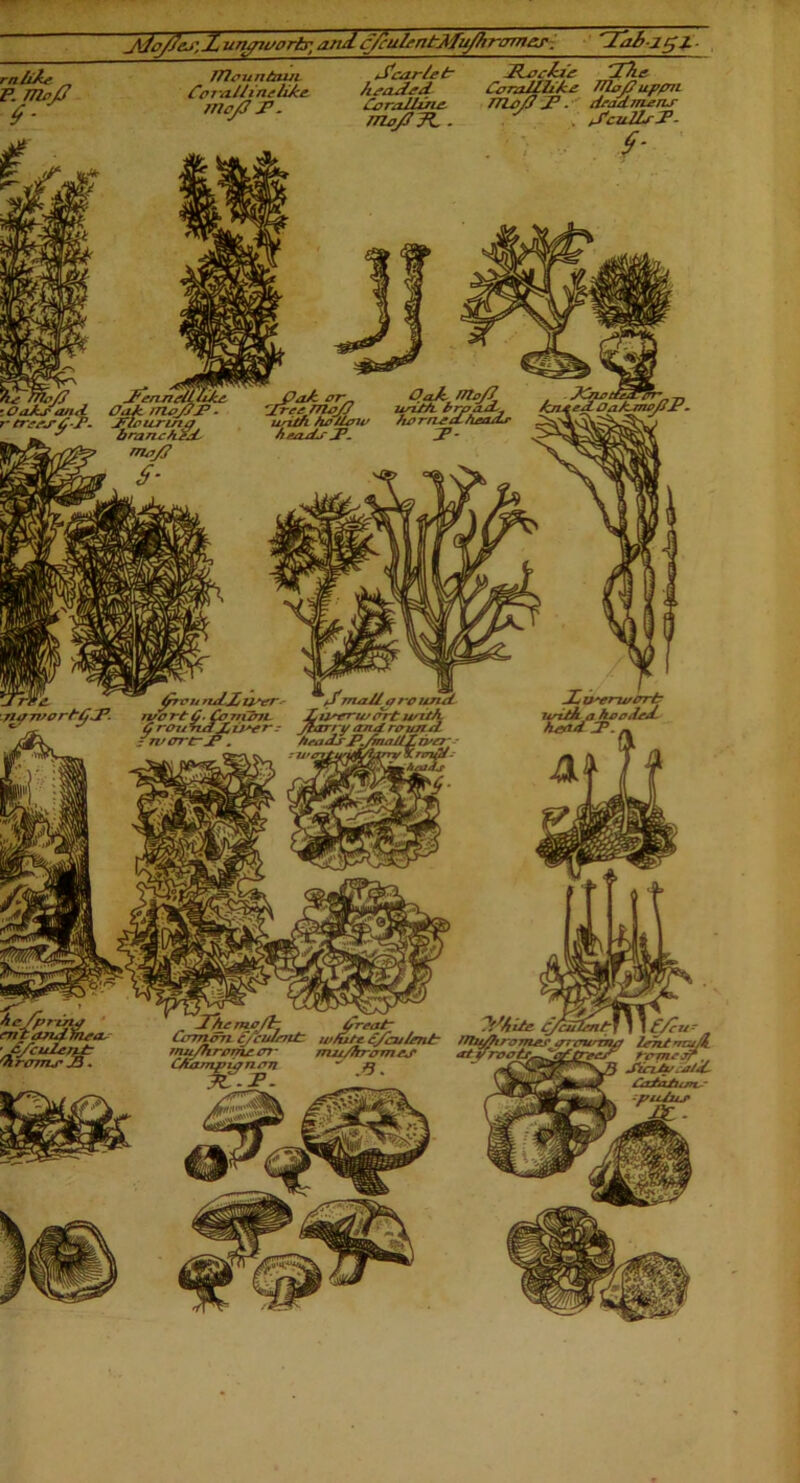 Mosses, Lungworts, and EsculentMushromes. Tab. 151.
rn like
P. Moss
g.
Mountain
Corallinelike
moss P.
Scarlet
headed
Coralline
moss R.
Rockie
Coralllike
moss P.
The
Moss uppon
dead mens
Sculls P.
g.
he Moss
Oaks and
r trees g. P.
Fennell like
Oak moss P.
Flouring
branched
moss
g.
Oak or
Tree Moss
with hollow
heads P.
Oak Moss
with broad
horned heads
P.
Knotted or
kneed Oak moss P.
Tree
ngwort g. P.
Ground Liver-
wort g. Comon
Ground Liver=
=wort P.
Small ground
Liverwort with
starry and round
heads P. small Liver-
heads
g.
Liverwort
with a hooded
head P.
he spring
ent and mea-
Esculent
shroms B.
The most
Common Esculent
mushrome or
Champignon
R. P.
Great
white Esculent
mushromes
B.
White Esculent
Mushromes growing
at y roots of trees
B
Escu-
lent mush
rome of
Catatum-
-pulus
R.